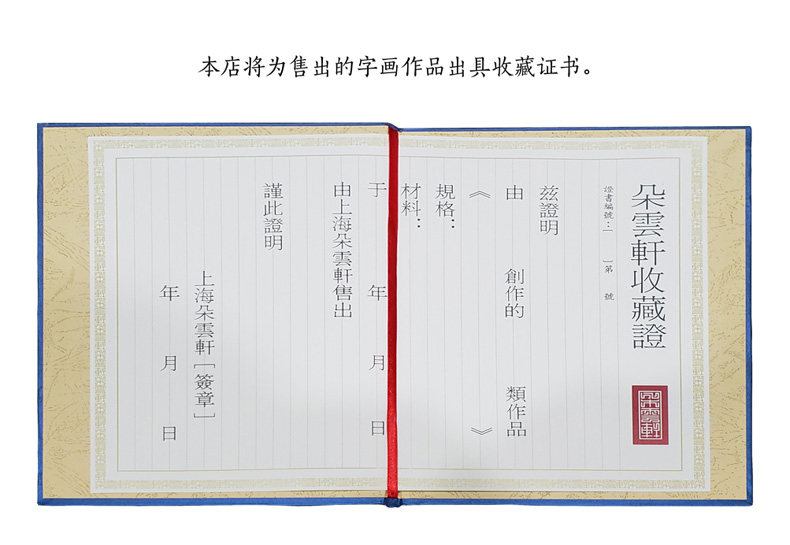 本店将为售出的字画作品出具收藏证书。
朵雲軒收藏證
證書編號：[ ]第 號
朵雲軒
兹證明
由 創作的 類作品
《 》
規格：
材料：
于 年 月 日
由上海朵雲軒售出
謹此證明
上海朵雲軒[簽章]
年 月 日